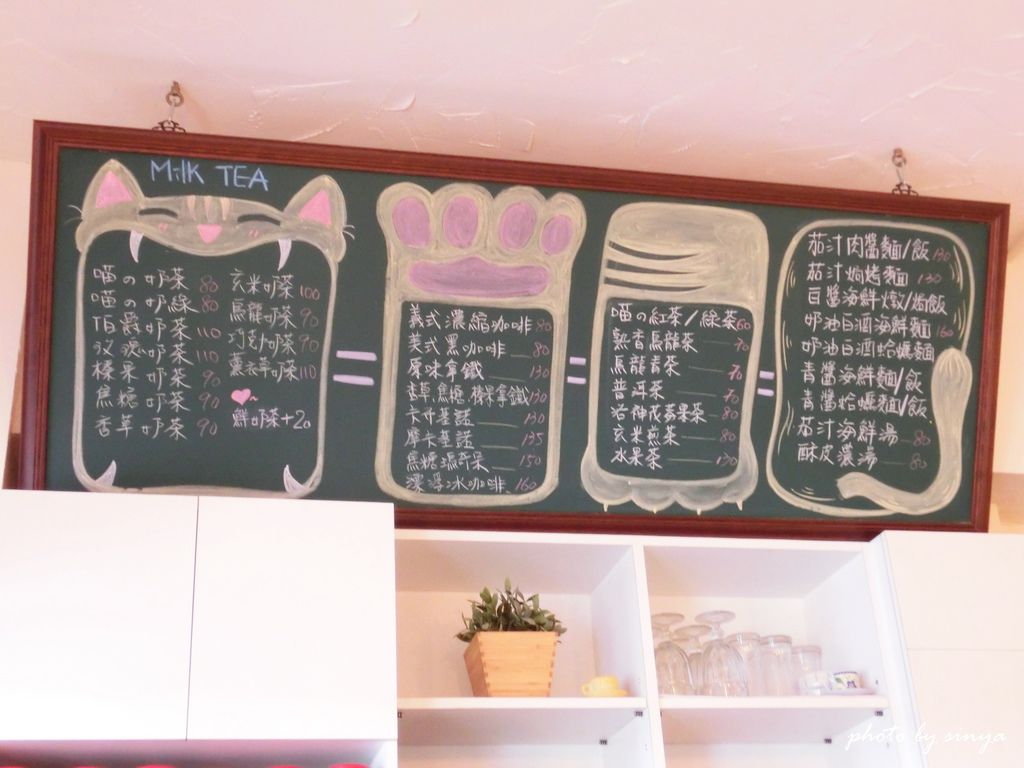 MilK TEA
喵の奶茶 80
喵の奶綠 80
伯爵奶茶 110
玫瑰奶茶 110
榛果奶茶 90
焦糖奶茶 90
香草奶茶 90
玄米奶茶 100
烏龍奶茶 90
巧克力奶茶 90
薰衣草奶茶 110
鮮奶茶+20
義式濃縮咖啡 80
義式黑咖啡 80
原味拿鐵 130
香草.焦糖.榛果拿鐵 130
卡布基諾 130
摩卡基諾 135
焦糖瑪奇朵 150
漂浮冰咖啡 160
喵の紅茶/綠茶 60
熟香烏龍茶 70
烏龍青茶 70
普洱茶 70
洛神花蘋果茶 80
玄米煎茶 80
水果茶 130
茄汁肉醬麵/飯 130
茄汁焗烤麵 130
白醬海鮮燉/焗飯
奶油白酒海鮮麵 160
奶油白酒蛤蠣麵
青醬海鮮麵/飯
青醬蛤蠣麵/飯
茄汁海鮮湯 80
酥皮濃湯 80
photo by sinya